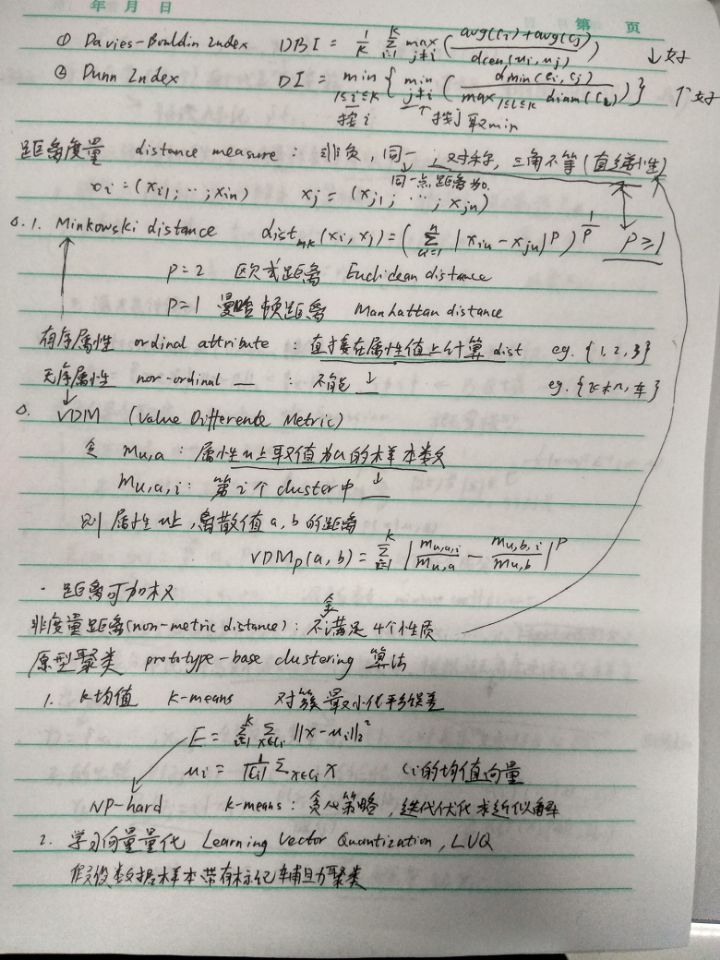 年 月 日 第 页
① Davies-Bouldin Index DBI = \frac{1}{K} \sum_{i=1}^{K} \max_{j≠i} ( \frac{avg(C_i)+avg(C_j)}{d_{cen}(μ_i, μ_j)} ) ↓好
② Dunn Index DI = \min_{1≤i≤K} { \min_{j≠i} ( \frac{d_{min}(C_i, C_j)}{\max_{1≤l≤K} diam(C_l)} ) } ↑好
找 i 找 j 取min
距离度量 distance measure : 非负, 同一, 对称, 三角不等(直递属性)
同一点距离为0.
x_i = (x_{i1}; ...; x_{in}) x_j = (x_{j1}; ...; x_{jn})
△.1. Minkowski distance dist_{mk}(x_i, x_j) = ( \sum_{u=1}^{n} |x_{iu} - x_{ju}|^P )^{\frac{1}{P}} P≥1
P=2 欧式距离 Euclidean distance
P=1 曼哈顿距离 Manhattan distance
有序属性 ordinal attribute : 直接在属性值上计算 dist eg. {1, 2, 3}
无序属性 non-ordinal — : 不能 ↓ eg. {飞机, 车}
△. VDM (Value Difference Metric)
令 m_{u,a} : 属性u上取值为a的样本数
m_{u,a,i} : 第 i 个 cluster中 ↓
则 属性u上, 离散值 a, b 的距离
VDM_p(a, b) = \sum_{i=1}^{K} | \frac{m_{u,a,i}}{m_{u,a}} - \frac{m_{u,b,i}}{m_{u,b}} |^P
· 距离可加权
非度量距离(non-metric distance) : 不全满足 4个性质
原型聚类 prototype-base clustering 算法
1. K均值 K-means 对簇最小化平方误差
E = \sum_{i=1}^{K} \sum_{x∈C_i} ||x - μ_i||_2^2
μ_i = \frac{1}{|C_i|} \sum_{x∈C_i} x C_i的均值向量
NP-hard K-means : 贪心策略, 迭代优化求近似解
2. 学习向量量化 Learning Vector Quantization, LVQ
假设数据样本带有标记辅助聚类